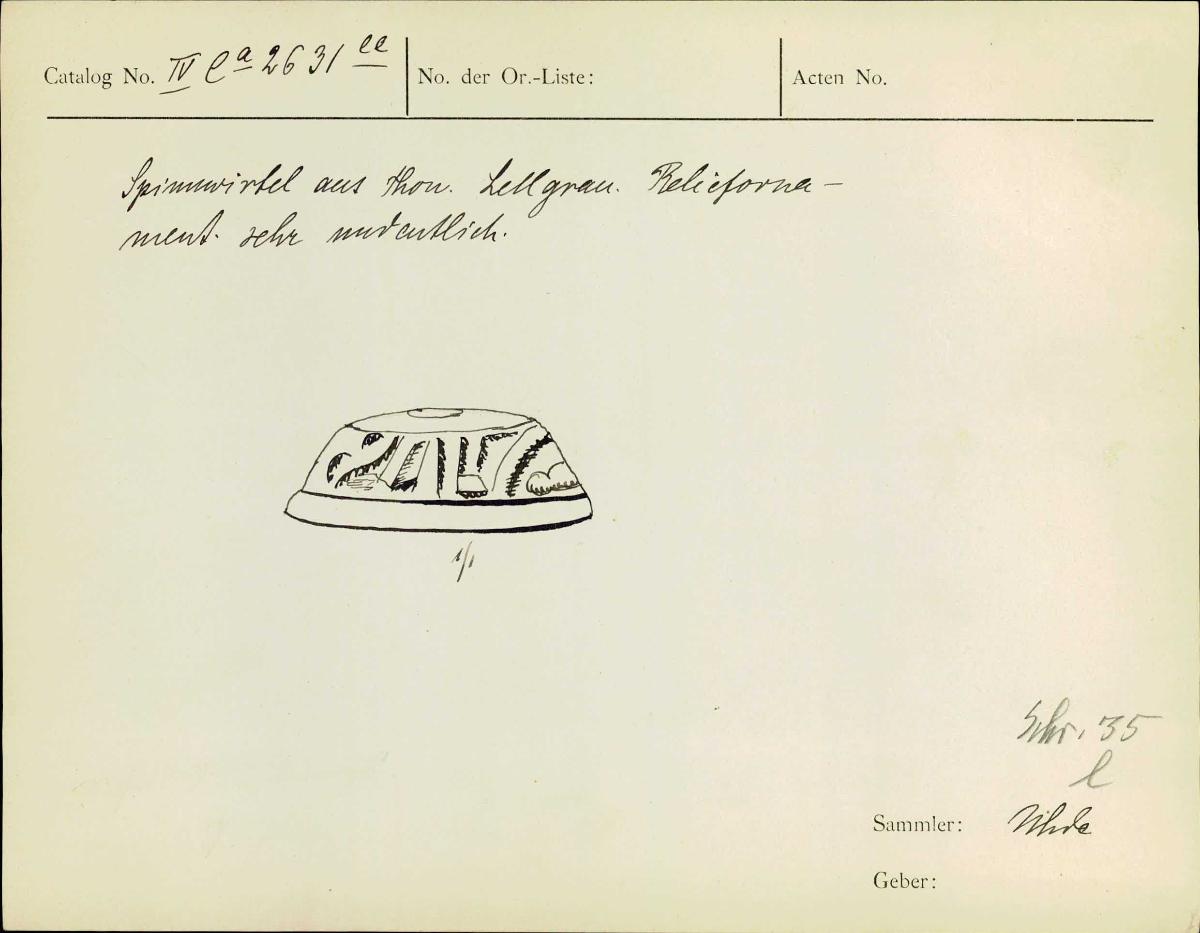 Catalog No. IV Ca 2631 ee
No. der Or.-Liste:
Acten No.
Spinnwirtel aus Thon. Hellgrau. Relieforna-
ment. sehr undeutlich.
1/1
Schr. 35
l
Sammler: Uhde
Geber: